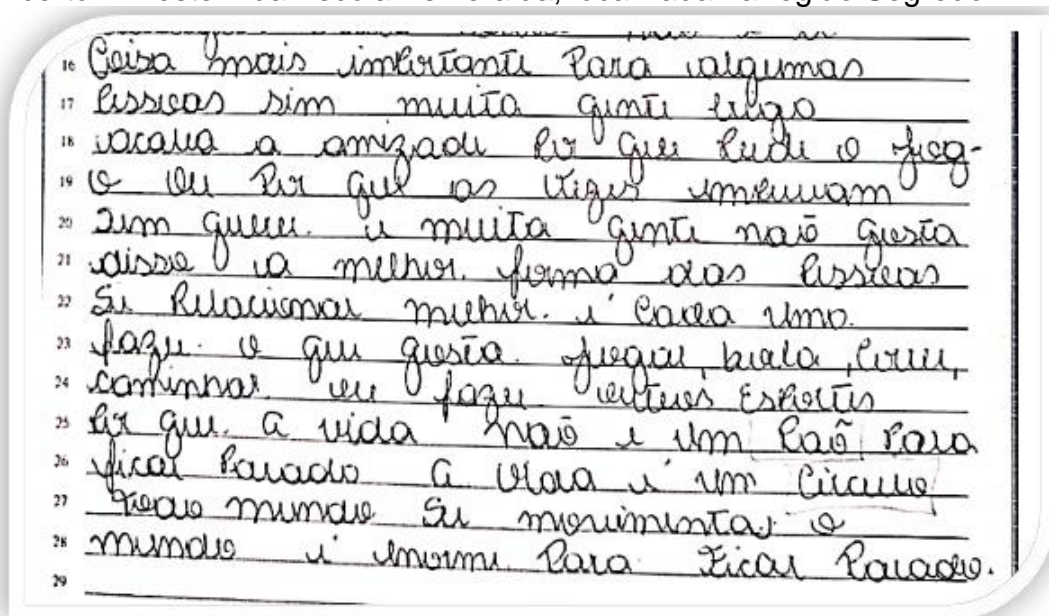 16 Coisa mais importante Para algumas
17 Pessoas sim muita gente logo
18 acaba a amizade Por que Perde o jog-
19 o ou Por que as vezes
20 Sem querer. e muita gente naõ gosta
21 disso a melhor. forma das Pessoas
22 Se Relacionar melhor. é Cada um
23 fazer. o que gosta. jogar, bola, Correr,
24 caminhar ou fazer outros Esportes
25 Por que. a vida naõ e um Paõ Para
26 ficar Parado a vida é um Circulo
27 Todo mundo Se movimenta, o
28 mundo é enorme Para Ficar Parado.
29